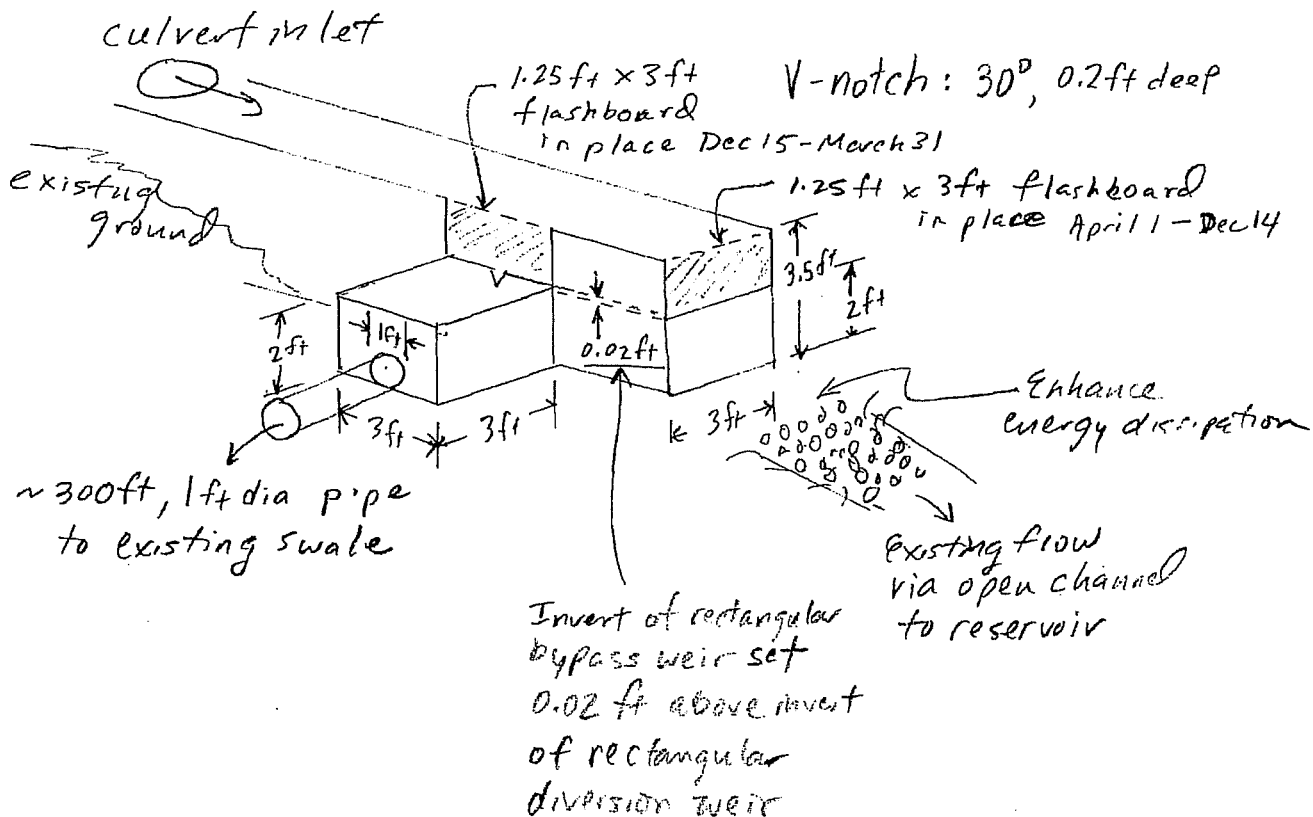 culvert inlet
1.25 ft x 3 ft
flashboard
in place Dec 15 - March 31
V-notch: 30°, 0.2 ft deep
1.25 ft x 3 ft flashboard
in place April 1 - Dec 14
existing
ground
3.5 ft
2 ft
1 ft
2 ft
0.02 ft
3 ft
3 ft
3 ft
Enhance
energy dissipation
~ 300 ft, 1 ft dia pipe
to existing swale
Existing flow
via open channel
to reservoir
Invert of rectangular
bypass weir set
0.02 ft above invert
of rectangular
diversion weir